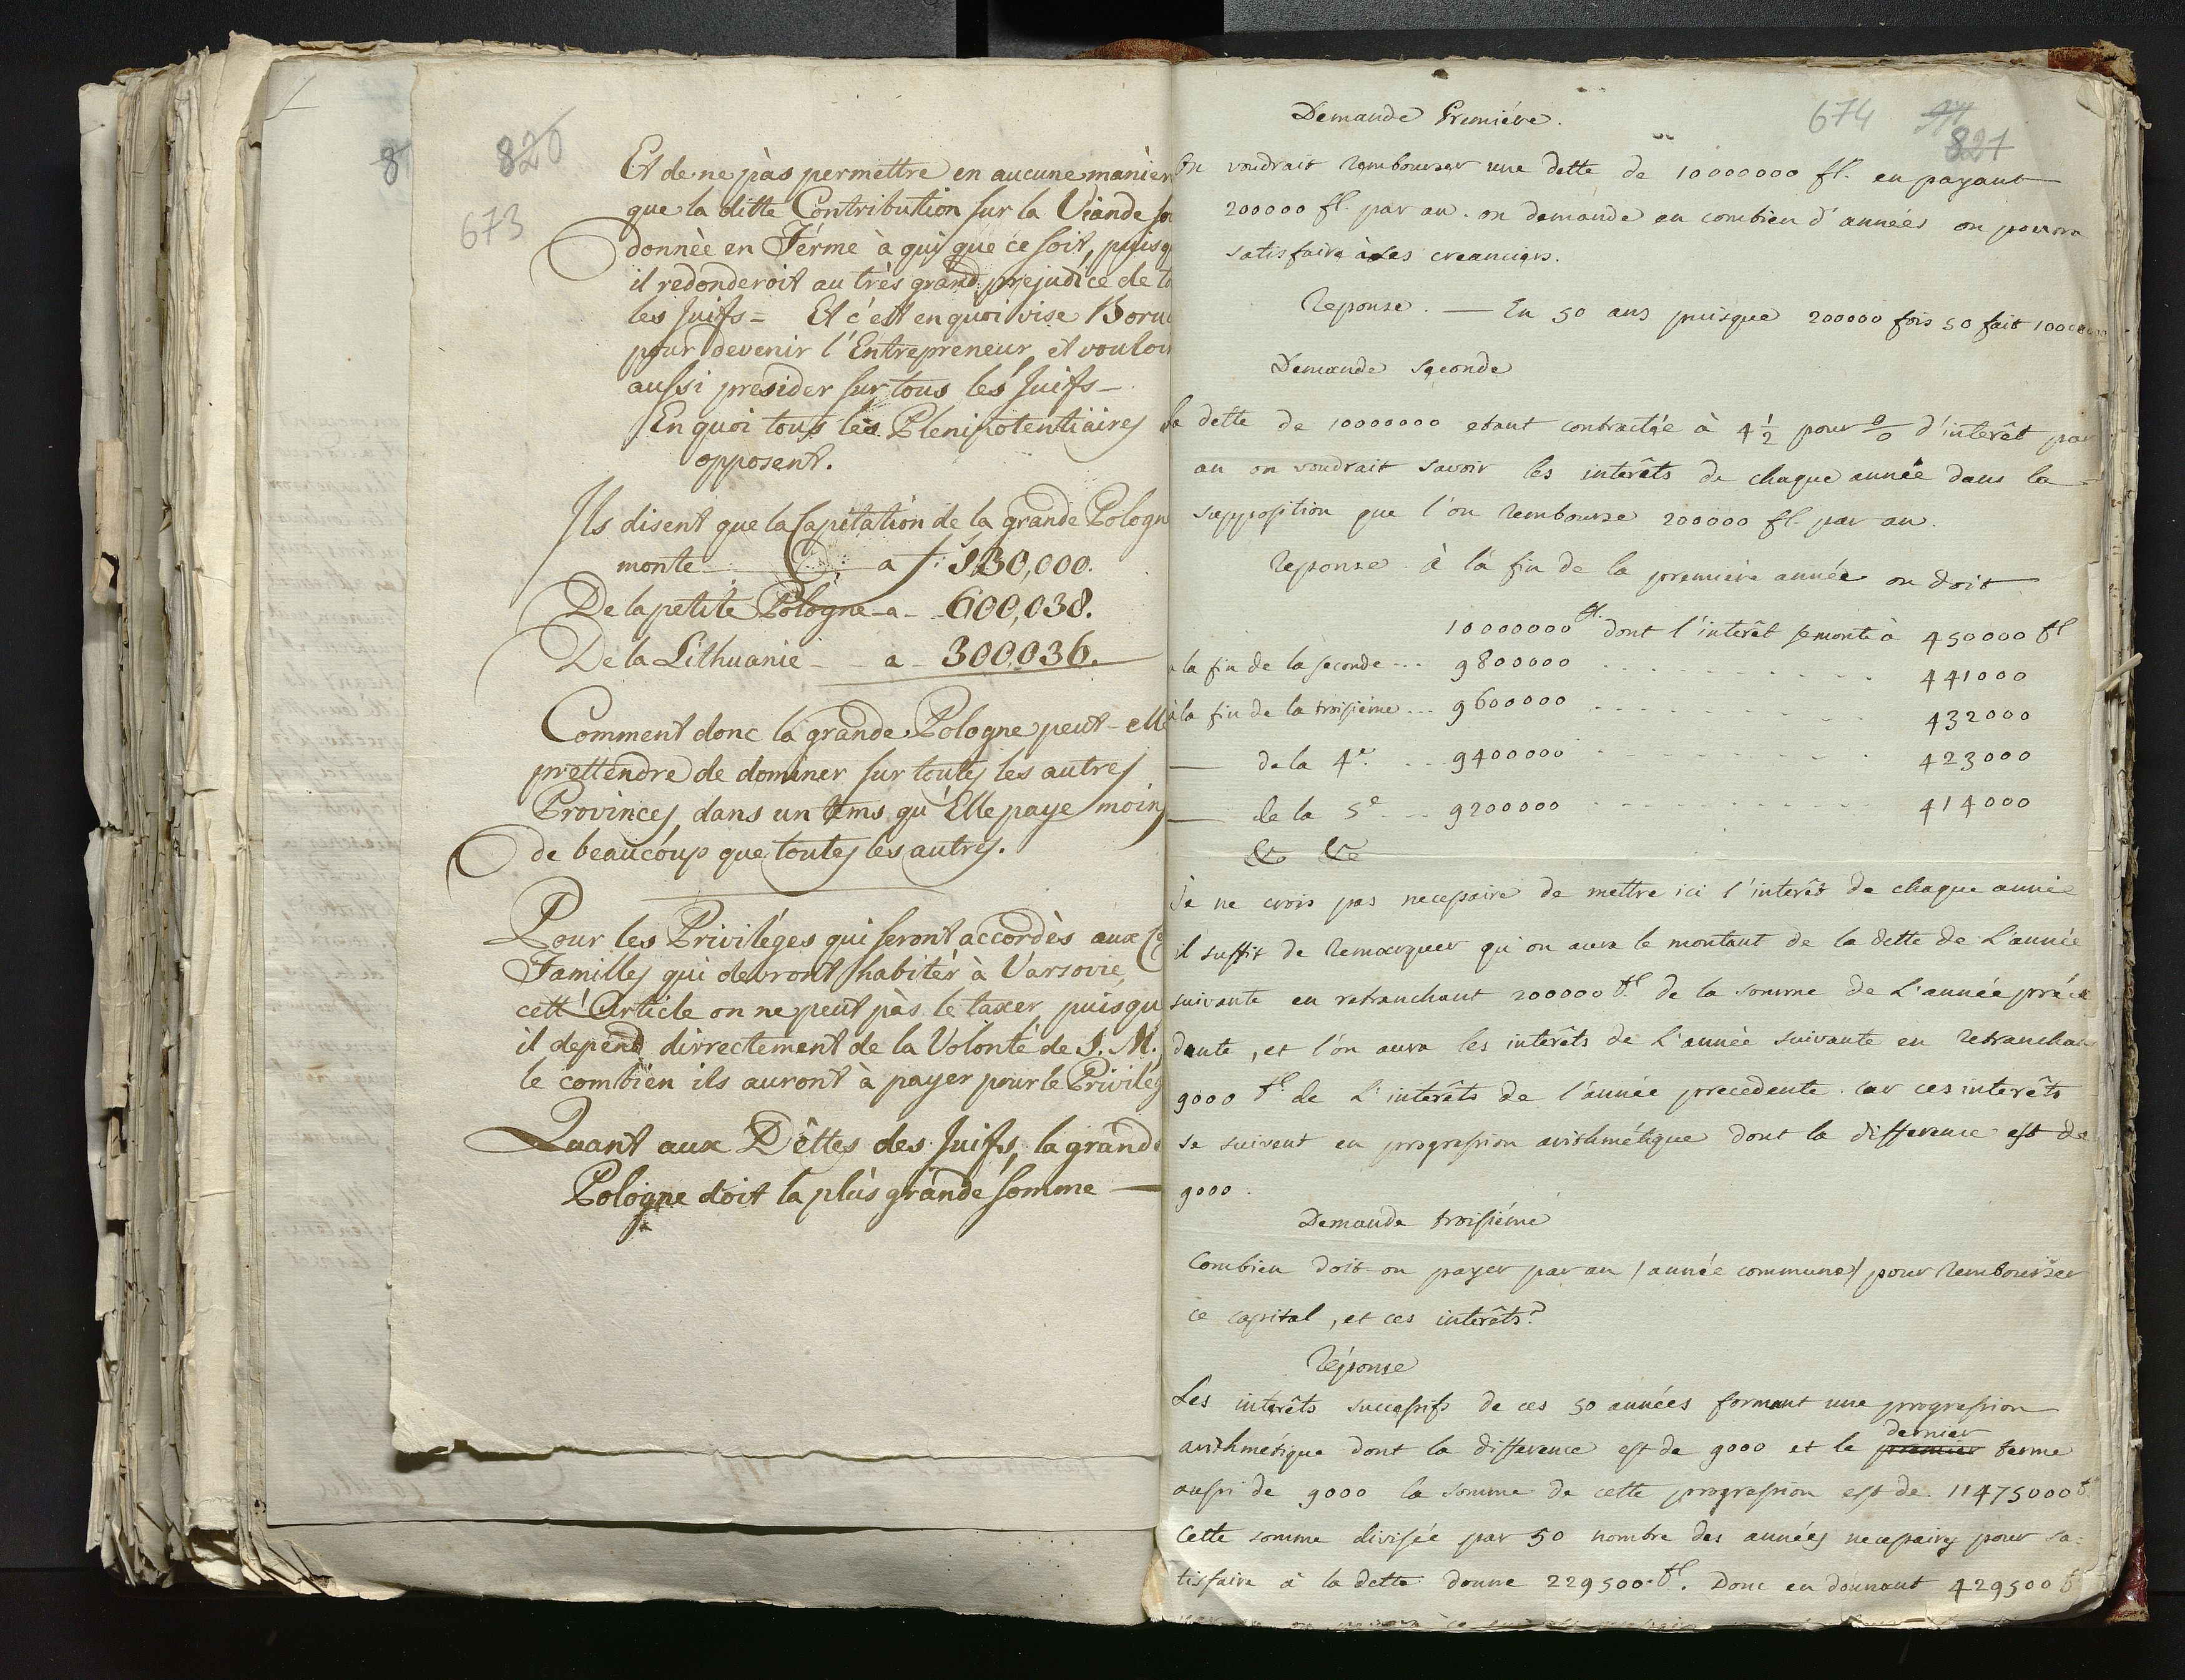 820
673
Et de ne pàs permettre en aucune manièr
que la ditte Contribution sur la Viande so
donnèe en Férme à qui que ce soit, puisq
il redonderoit au très grand prejudice de to
les Juifs = Et c'est en quoi vise Boru
pour devenir l'Entrepreneur et vouloir
aussi presider sur tous les Juifs –
En quoi tous les Plenipotentiaires
opposent.
Ils disent que la Capitation de la grande Pologn
monte – a f: 130,000.
De la petite Pologne – a – 600,038.
De la Lithuanie – a – 300,036.
Comment donc la grande Pologne peut-elle
prettendre de dominer sur toutes les autres
Provinces, dans un tems qu'Elle paye moins
de beaucóup que toutes les autres.
Pour les Priviléges qui seront accordès aux
Familles qui devront habiter à Varsovie,
cett' Article on ne peut pàs le taxer, puisqu
il depend dirrectement de la Volonté de S. M.
le combien ils auront à payer pour le Privilég
Quant aux Dèttes des Juifs, la grande
Pologne doit la plùs grande somme —
674
821
Demande Premiére.
On voudrait rembourser une dette de 10000000 fl. en payant
200000 fl. par an. on demande en combien d'années on pourra
satisfaire à les creanciers.
Reponse. — En 50 ans puisque 200000 fois 50 fait 10000000
Demande seconde
La dette de 10000000 etant contractée à 4 1/2 pour % d'interêt par
an on voudrait savoir les interêts de chaque année dans la
supposition que l'on rembourse 200000 fl. par an.
Reponse à la fin de la premiere année on doit
10000000 fl. dont l'interêt se monte à 450000 fl
à la fin de la seconde ... 9800000 ... 441000
à la fin de la troisième ... 9600000 ... 432000
— de la 4e. ... 9400000 ... 423000
— de la 5e ... 9200000 ... 414000
&c &c
Je ne crois pas necessaire de mettre ici l'interêt de chaque année
il suffit de remarquer qu'on aura le montant de la dette de L'année
suivante en retranchant 200000 fl. de la somme de L'année précé
dente, et l'on aura les interêts de L'année suivante en retranchant
9000 fl. de L'interêts de l'année precedente. car ces interêts
se suivent en progression arithmétique dont la difference est de
9000.
Demande troisiéme
Combien doit-on payer par an / année commune / pour rembourser
ce capital, et ces interêts?
Réponse
Les interêts successifs de ces 50 années formant une progression
arithmétique dont la difference est de 9000 et le premier dernier terme
aussi de 9000 la somme de cette progression est de 11475000 f.
Cette somme divisée par 50 nombre des années necessaires pour sa-
tisfaire à la dette donne 229500 fl. Donc en donnant 429500 f